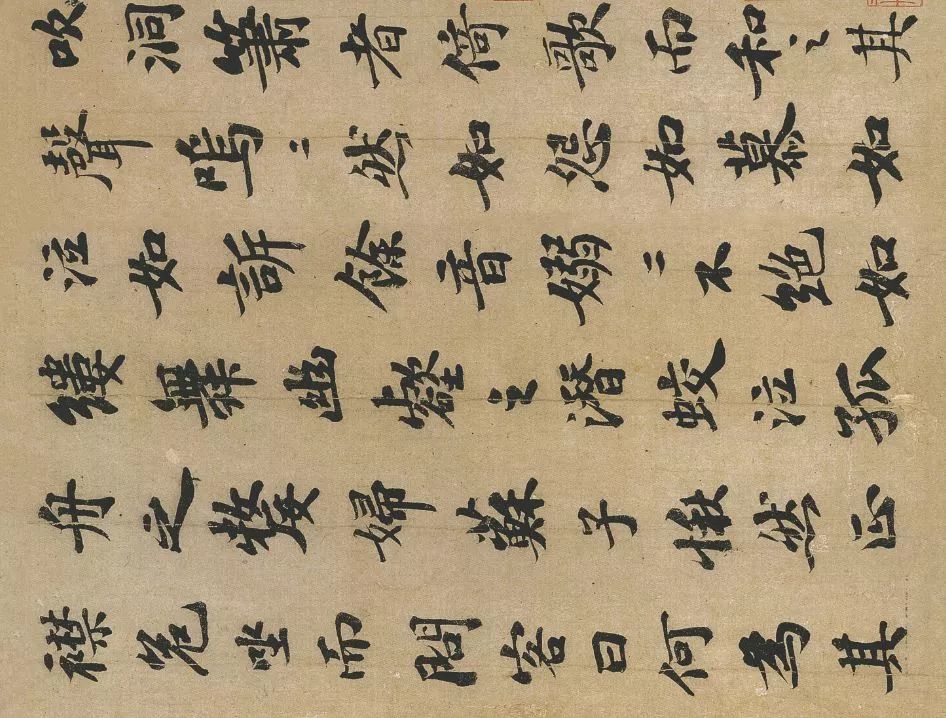 吹洞簫者倚歌而和之其
聲嗚〻然如怨如慕如
泣如訴餘音嫋〻不絕如
縷舞幽壑之潛蛟泣孤
舟之嫠婦蘇子愀然正
襟危坐而問客曰何為其